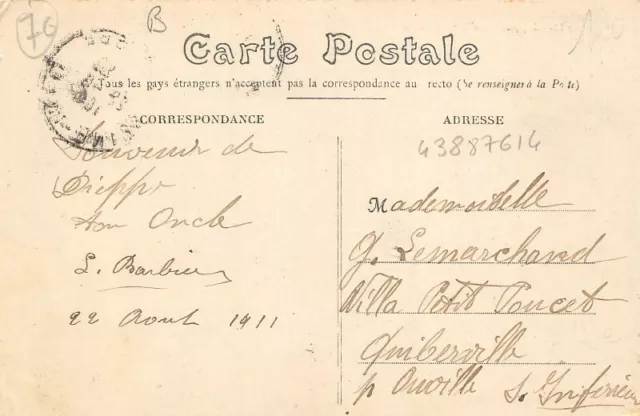 76
B
Carte Postale
Tous les pays étrangers n'acceptent pas la correspondance au recto (Se renseigner à la Poste)
CORRESPONDANCE
ADRESSE
43887614
Souvenir de
Dieppe
ton Oncle
L. Barbier
22 Aout 1911
Mademoiselle
G. Lemarchand
Villa Petit Poucet
Quiberville
p Ouville S. Inférieure